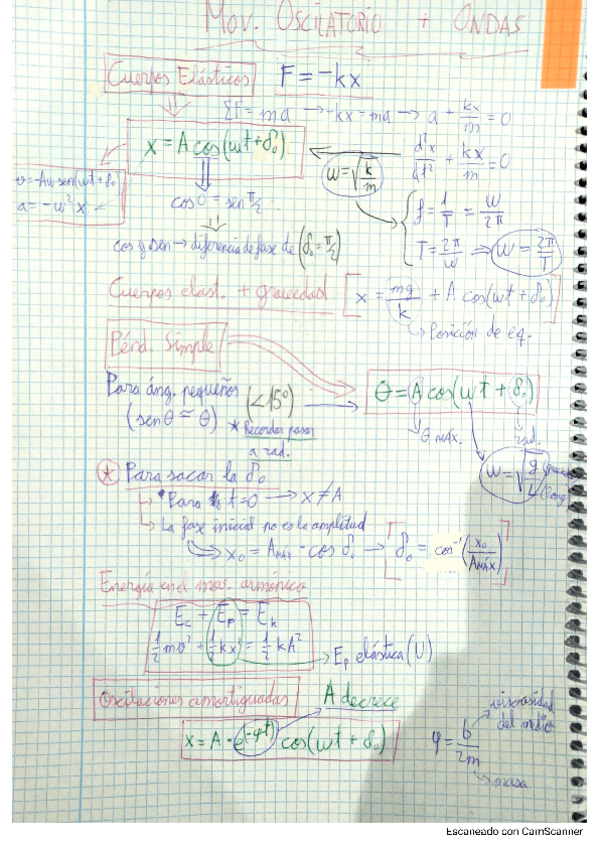 Mov. Oscilatorio + Ondas
Cuerpos Elásticos F = -kx
ΣF = ma → -kx = ma → a + kx/m = 0
x = A cos(ωt + δ₀) d²x/dt² + kx/m = 0
ω = √(k/m)
v = -Aω sen(ωt + δ₀)
a = -ω²x
cos 0 = sen π/2
f = 1/T = ω/2π
T = 2π/ω ⇒ ω = 2π/T
cos y sen → diferencia de fase de (δ₀ = π/2)
Cuerpos elast. + gravedad [x = mg/k + A cos(ωt + δ₀)]
↳ Posición de eq.
Pénd. Simple
Para áng. pequeños (<15º) → θ = A cos(ωt + δ₀)
(sen θ ≃ θ) * Recordar pasar
a rad.
θ máx. rad.
ω = √(g/L)
* Para sacar la δ₀
↳ *Para t = 0 → x ≠ A
↳ La fase inicial no es la amplitud
→ x₀ = Amáx · cos δ₀ → [δ₀ = cos⁻¹(x₀/Amáx)]
Energía en el mov. armónico
Ec + Ep = Ek
½mv² + ½kx² = ½kA²
→ Ep elástica (U)
Oscilaciones amortiguadas A decrece
x = A · e^(-φt) cos(ωt + δ₀)
φ = b/2m
viscosidad
del medio
masa
Escaneado con CamScanner